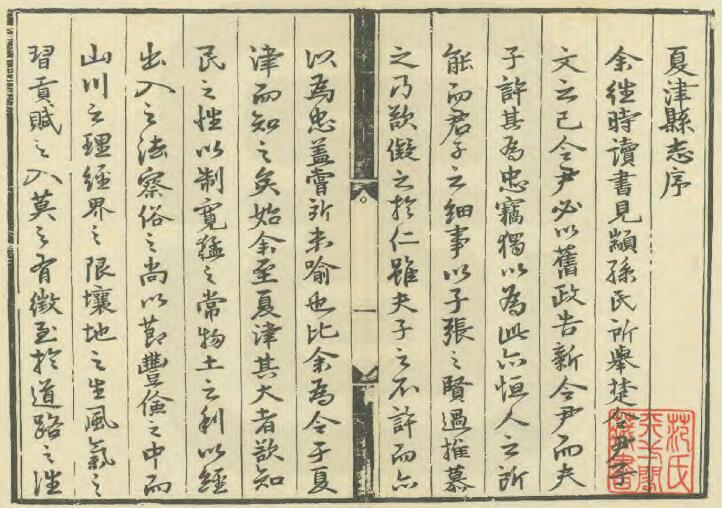 夏津縣志序
余往時讀書見顓孫氏所舉楚令尹子
文之已令尹必以舊政告新令尹而夫
子許其為忠竊獨以為此亦恒人之所
能而君子之細事以子張之賢過推慕
之乃欲儗之於仁雖夫子之不許而亦
以為忠蓋嘗所未喻也比余為令于夏
津而知之矣始余至夏津其大者欲知
民之性以制寬猛之常物土之利以經
出入之法察俗之尚以節豐儉之中而
山川之理經界之限壤地之生風氣之
習貢賦之入莫之有徵至於道路之洼
范氏天一閣藏書